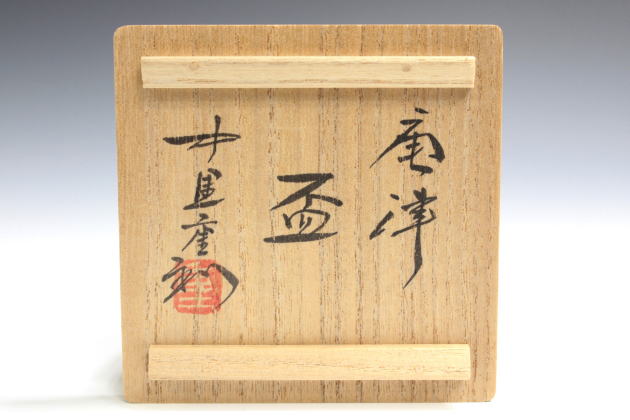 唐津
盃
中里重利